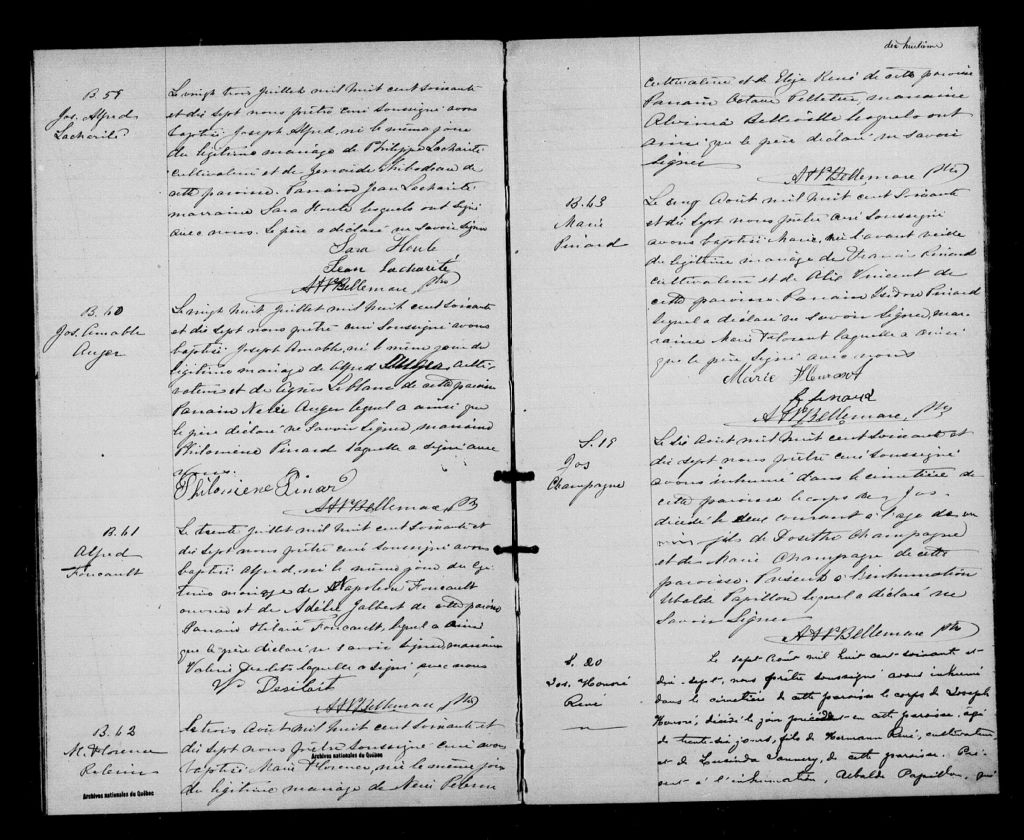 B. 59
Jos. Alfred
Lacharité
Le vingt trois Juillet mil huit cent soixante
et dix sept nous prêtre curé soussigné avons
baptisé Joseph Alfred, né le même jour
du légitime mariage de Philippe Lacharité
cultivateur et de Zénaïde Thibodeau de
cette paroisse. Parrain Jean Lacharité
marraine Sara Houle lesquels ont signé
avec nous. Le père a déclaré ne savoir signer
Sara Houle
Jean Lacharité
Bellemare Ptre
B. 60
Jos. Amable
Auger
Le vingt huit Juillet mil huit cent soixante
et dix sept nous prêtre curé soussigné avons
baptisé Joseph Amable, né le même jour du
légitime mariage de Alfred Auger culti-
vateur et de Agnès Leblanc de cette paroisse
Parrain Auger lequel a ainsi que
le père déclaré ne savoir signer, marraine
Philomène Pinard laquelle a signé avec
nous.
Philomene Pinar
Bellemare P
B. 61
Alfred
Foucault
Le trente Juillet mil huit cent soixante et
dix sept nous prêtre curé soussigné avons
baptisé Alfred, né le même jour du légi-
time mariage de Napoléon Foucault
et de Adélie Jalbert de cette paroisse
Parrain Hilaire Foucault, lequel a ainsi
que le père déclaré ne savoir signer, marraine
laquelle a signé avec nous
Desilait
Bellemare, Ptre
B. 62
M. Florence
Le trois Août mil huit cent soixante et
dix sept nous prêtre soussigné curé avons
baptisé Marie Florence, née le même jour
du légitime mariage de
Archives nationales du Québec
Archives nationales du Québec
dix huitième
cultivateur et de René de cette paroisse
Parrain Octave Pelletier, marraine
lesquels ont
ainsi que le père déclaré ne savoir
signer
Bellemare Ptre
B. 63
Marie
Pinard
Le cinq Août mil huit cent soixante
et dix sept nous prêtre curé soussigné
avons baptisé Marie, née l'avant veille
du légitime mariage de Pinard
cultivateur et de Vincent de
cette paroisse. Parrain Isidore Pinard
lequel a déclaré ne savoir signer, mar-
raine Marie laquelle a ainsi
que le père signé avec nous
Marie
Pinard
Bellemare, Ptre
S. 19
Jos
Champagne
Le dix Août mil huit cent soixante et
dix sept nous prêtre curé soussigné
avons inhumé dans le cimetière de
cette paroisse le corps de Jos.
décédé le deux courant à l'age de un
mois fils de Dosithé Champagne
et de Marie Champagne de cette
paroisse. Présent à l'inhumation
Ubalde Papillon lequel a déclaré ne
savoir signer
Bellemare Ptre
S. 20
Jos. Honoré
René
Le sept Août mil huit cent soixante et
dix-sept, nous prêtre soussigné avons inhumé
dans le cimetière de cette paroisse le corps de Joseph
Honoré, décédé le jour précédent en cette paroisse, âgé
de trente-six jours, fils de Hermann René, cultivateur
et de Lucinda de cette paroisse. Pré-
sent à l'inhumation, Ubalde Papillon, qui